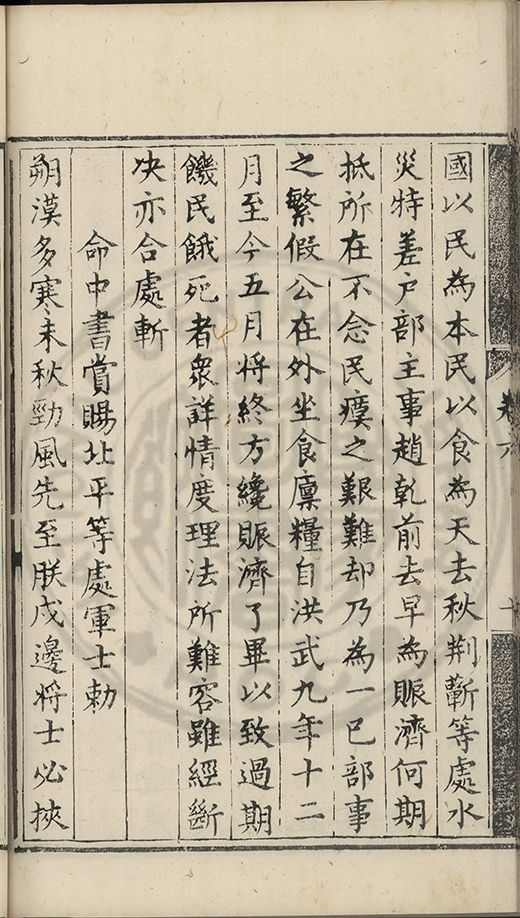 國以民為本民以食為天去秋荆蘄等處水
災特差户部主事趙乾前去早為賑濟何期
抵所在不念民瘼之艱難却乃為一已部事
之繁假公在外坐食廩糧自洪武九年十二
月至今五月將終方纔賑濟了畢以致過期
饑民餓死者衆詳情度理法所難容雖經斷
决亦合處斬
命中書賞賜北平等處軍士勅
朔漠多寒未秋勁風先至朕戍邊將士必挾
卷六